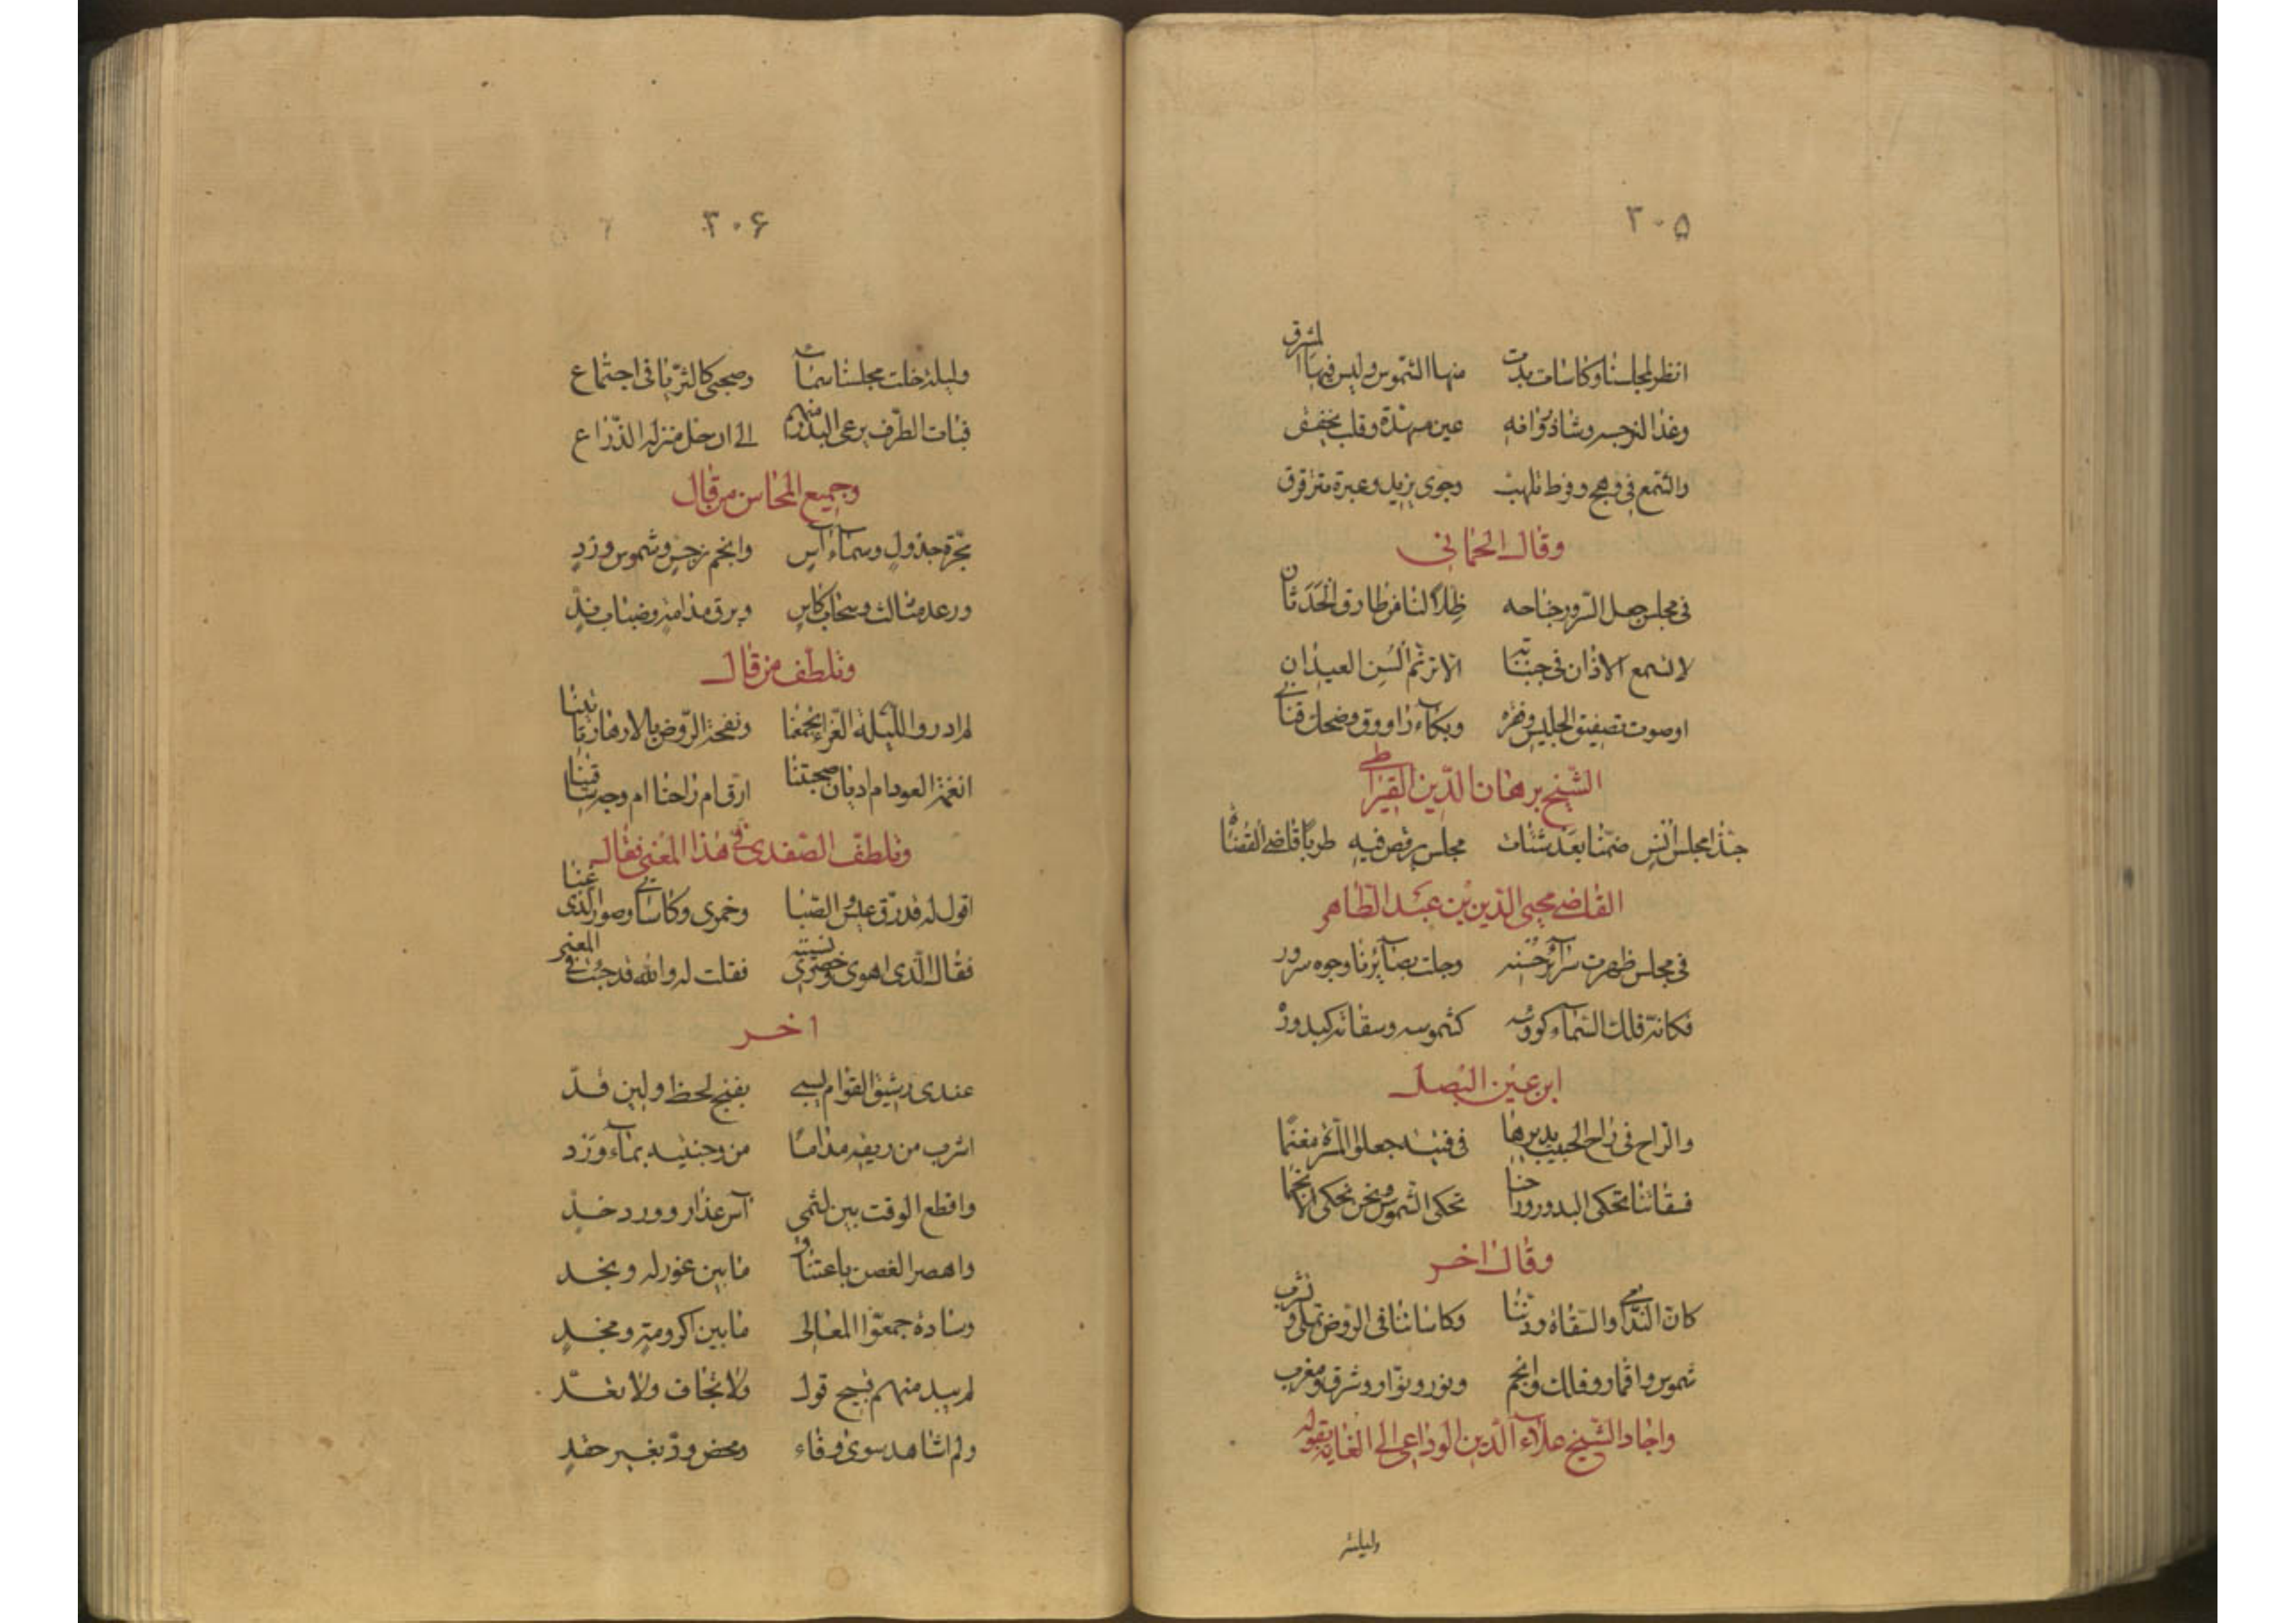 ٣٠۵
انظر لمجلسنا وكاسات بدت منها الشموس وليس فيها المشرق
وغدا النرجس وشاد توافه عين مسهدة وقلب يخفق
والشمع في وهج وفرط تلهب وجوى يزيد وعبرة مترقرق
وقال الحماني
في مجلس جعل السرور جناحه ظلاً لنا من طارق الحدثان
لا تسمع الاذان في جنباته الا ترنم السن العيدان
او صوت تصفيق الجليس ونقره وبكاء راووق وضحك قناني
الشيخ برهان الدين القيراطي
حبذا مجلس انس ضمنا بعد شتات مجلس يرقص فيه طربا قاضي القضاة
القاضي محيي الدين بن عبد الظاهر
في مجلس ظهرت سرائر حسنه وجلت بصائرنا وجوه سرور
فكانه فلك السماء كووسه كشموسه وسقاته كبدوره
ابن عين البصل
والراح في راح الحبيب يديرها في فتية جعلوا المسرة مغنما
فسقاتنا تحكى البدور وراحنا تحكى الشموس ونحن نحكى الانجما
وقال اخر
كان الندامي والسقاة ودننا وكاساتنا في الروض تملى وتشرب
شموس واقمار وفلك وانجم ونور ونوار وشرق ومغرب
واجاد الشيخ علاء الدين الوداعي الى الغاية بقوله
وليلة
٣٠۶
وليلة خلت مجلسنا سماء وصحبي كالثريا في اجتماع
فبات الطرف يرعى البدر منهم الى ان حل منزلة الذراع
وجميع المحاسن من قال
مجرة جدول وسماء اس وانجم نرجس وشموس ورد
ورعد مثالث وسحاب كاس وبرق مدامة وضباب ند
وتلطف من قال
لم ادر والليلة الغراء تجمعنا ونفحة الروض بالازهار تاتينا
انغمة العود ام ادبان صحبتنا ارق ام راحنا ام وجه ساقينا
وتلطف الصفدي في هذا المعنى فقال
اقول له قد رق عيش الصبا وخمرى وكاساتي وصوت الذى غنا
فقال الذى اهوى وخصرى نسيته فقلت له والله قد جئت في المعنى
اخر
عندى رشيق القوام يسبي بغنج لحظ ولين قد
اشرب من ريقه مداما من وجنتيه بماء ورد
واقطع الوقت بين لثمي آس عذار وورد خد
واهصر الغصن باعتناق ما بين غور له ونجد
وسادة جمعوا المعالي ما بين اكرومة ومجد
لم يبد منهم قبيح قول ولا تجاف ولا تعد
ولم اشاهد سوى وفاء ومحض ود بغير حقد